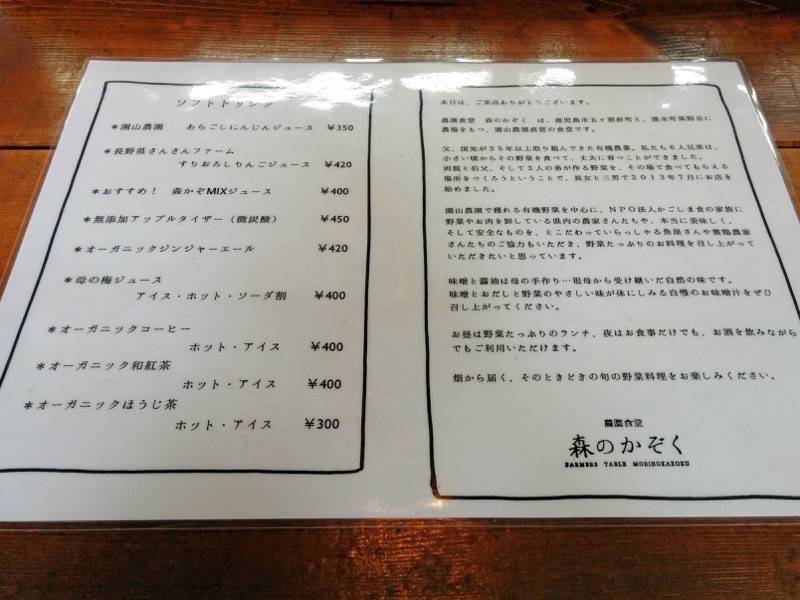 ソフトドリンク
＊園山農園 あらごしにんじんジュース ¥350
＊長野県さんさんファーム
すりおろしりんごジュース ¥420
＊おすすめ！ 森かぞMIXジュース ¥400
＊無添加アップルタイザー（微炭酸） ¥450
＊オーガニックジンジャーエール ¥420
＊母の梅ジュース
アイス・ホット・ソーダ割 ¥400
＊オーガニックコーヒー
ホット・アイス ¥400
＊オーガニック和紅茶
ホット・アイス ¥400
＊オーガニックほうじ茶
ホット・アイス ¥300
本日は、ご来店ありがとうございます。
農園食堂 森のかぞく は、鹿児島市五ヶ別府町と、湧水町栗野岳に
農場をもつ、園山農園直営の食堂です。
父、国光が35年以上取り組んできた有機農業。私たち6人兄弟は、
小さい頃からその野菜を食べて、丈夫に育つことができました。
両親と伯父、そして3人の弟が作る野菜を、その場で食べてもらえる
場所をつくろうということで、長女と三男で2013年7月にお店を
始めました。
園山農園で穫れる有機野菜を中心に、NPO法人かごしま食の家族に
野菜やお肉を卸している県内の農家さんたちや、本当に美味しく、
そして安全なものを、とこだわっていらっしゃる魚屋さんや養鶏農家
さんたちのご協力もいただき、野菜たっぷりのお料理を召し上がって
いただきたいと思っています。
味噌と醤油は母の手作り…祖母から受け継いだ自然の味です。
味噌とおだしと野菜のやさしい味が体にしみる自慢のお味噌汁をぜひ
召し上がってください。
お昼は野菜たっぷりのランチ、夜はお食事だけでも、お酒を飲みながら
でもご利用いただけます。
畑から届く、そのときどきの旬の野菜料理をお楽しみください。
農園食堂
森のかぞく
FARMERS TABLE MORINOKAZOKU